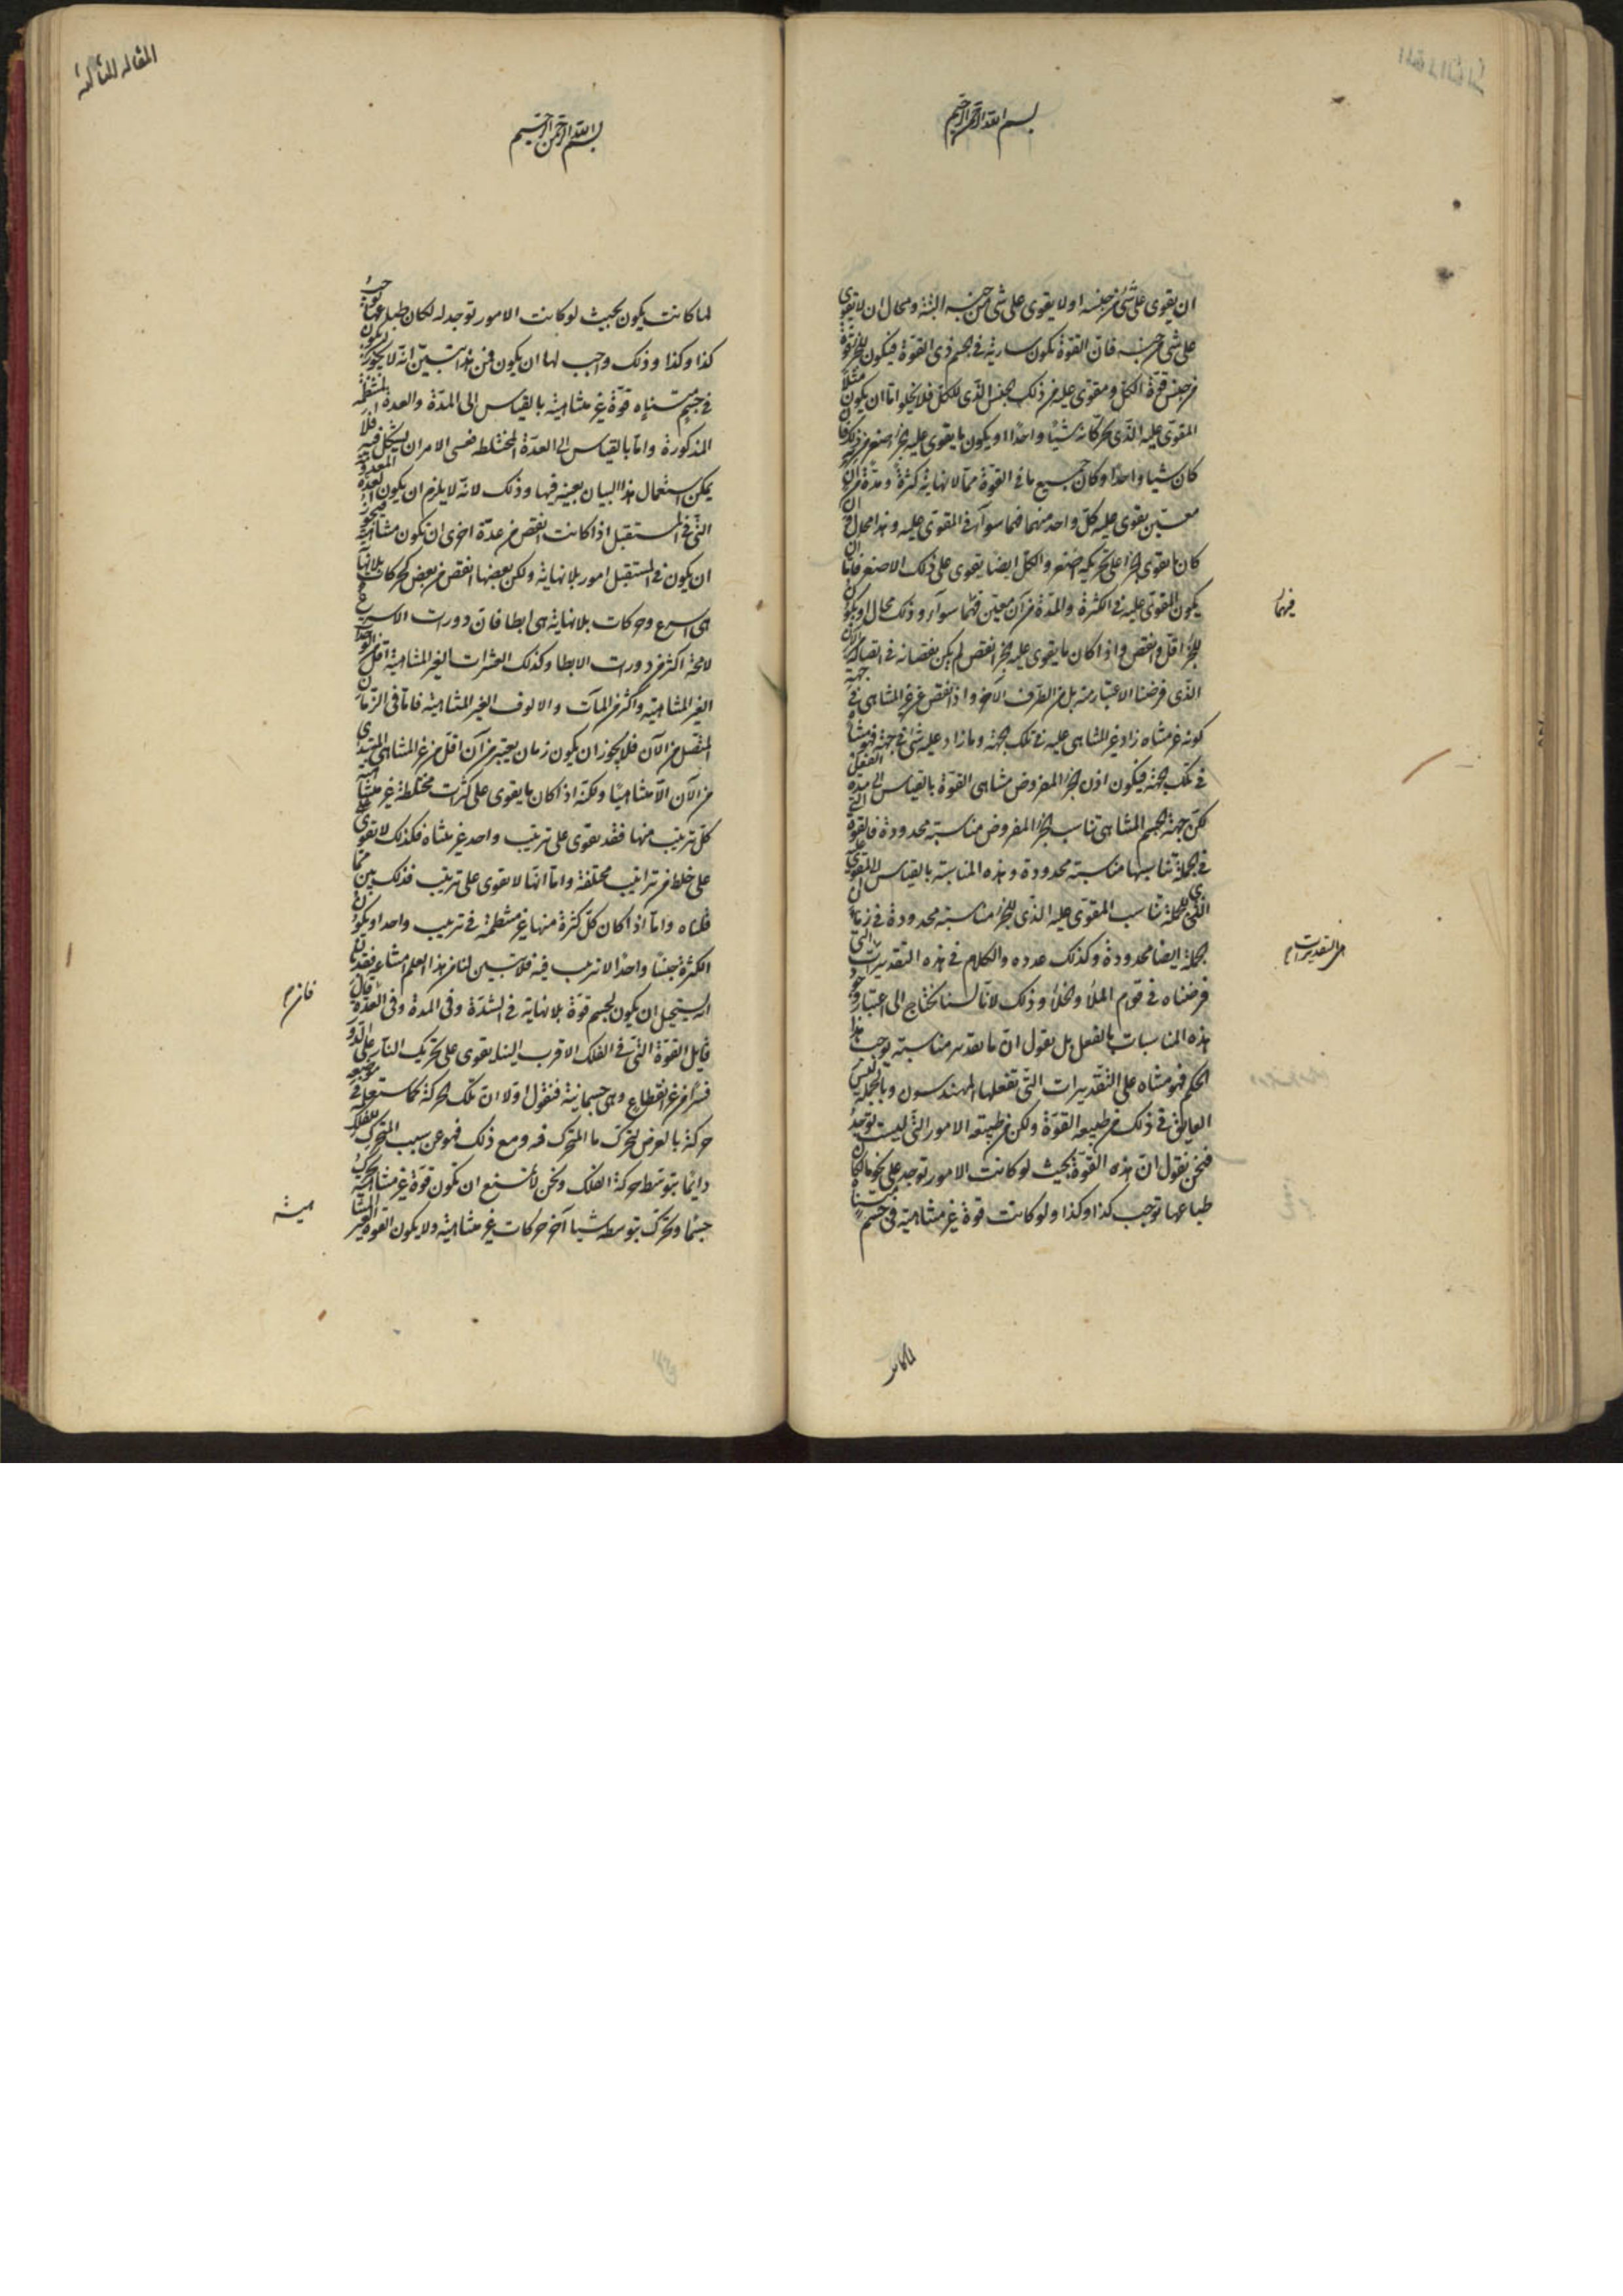 بسم الله الرحمن الرحيم
ان يقوى على شئ من جنسه اولا يقوى على شئ من جنسه البتة ومحال ان لا يقوى
على شئ من جنسه فان القوة تكون سارية فى الجسم ذى القوة فيكون للجزء قوة
من جنس قوة الكل ومقوى عليه من ذلك الجنس الذى للكل فلا يخلو اما ان يكون مثلا
المقوى عليه الذى يحركانه شيئا واحدا او يكون ما يقوى عليه الجزء اصغر من ذلك فان
كان شيا واحدا وكان جميع ما فى القوة مما لا نهاية كثرة ومدة من آن
معين يقوى عليه كل واحد منهما فهما سوآء فى المقوى عليه وهذا محال وان
كان ما يقوى الجزء على تحريكه اصغر والكل ايضا يقوى على ذلك الاصغر فاما ان
يكون المقوى عليه فى الكثرة والمدة من آن معين فيهما سوآء وذلك محال او يكون
للجزء اقل وانقص واذا كان ما يقوى عليه الجزء انقص لم يكن نقصانه فى اتصاله من الآن
الذى فرضنا الاعتبار منه بل من الطرف الآخر واذا نقص عن غير المتناهى فى جهة
كونه غير متناه زاد غير المتناهى عليه فى تلك الجهة وما زاد عليه شئ فى جهة فهو متناه
فى تلك الجهة فيكون اذن الجزء المفروض متناهى القوة بالقياس الى مدة الفعل
لكن جهة الجسم المتناهى تناسب الجزء المفروض مناسبة محدودة فالقوة التى
فى الجملة تناسبها مناسبة محدودة وهذه المناسبة بالقياس الى المقوى عليه
الذى للجملة تناسب المقوى عليه الذى للجزء مناسبة محدودة فى زمان
الجملة ايضا محدودة وكذلك عدده والكلام فى هذه التقديرات التى
فرضناه فى قوام الملأ والخلأ وذلك لانا لسنا نحتاج الى اعتبار وجود
هذه المناسبات بالفعل بل نقول ان ما تقديره مناسبة يوجب هذا
الحكم فهو متناه على التقديرات التى تفعلها المهندسون وبالجملة ليس
العايق فى ذلك من طبيعة القوة ولكن من طبيعة الامور التى ليست توجد
فنحن نقول ان هذه القوة بحيث لو كانت الامور توجد على نحو ما لكان
طباعها توجب كذا وكذا ولو كانت قوة غير متناهية فى جسم متناه
فيهما
لما كانت
المقالة الثالثة
بسم الله الرحمن الرحيم
لما كانت يكون بحيث لو كانت الامور توجد له لكان طباعها توجب
كذا وكذا وذلك واجب لها ان يكون فمن هذا تبين انه لا يجوز ان يكون
فى جسم متناه قوة غير متناهية بالقياس الى المدة والعدة المنتظمة
المذكورة واما بالقياس الى العدة المختلطة فعسى الامر ان يشكل فيه فلا
يمكن استعمال هذا البيان بعينه فيها وذلك لانه لا يلزم ان يكون العدة المعدودة
التى فى المستقبل اذا كانت انقص من عدة اخرى ان تكون متناهية فيجوز
ان يكون فى المستقبل امور بلا نهاية ولكن بعضها انقص من بعض كحركات بلا نهاية
هى اسرع وحركات بلا نهاية هى ابطا فان دورات الاسرع
لا محة اكثر من دورات الابطا وكذلك العشرات الغير المتناهية اقل من
الغير المتناهية واكثر من المآت والالوف الغير المتناهية فاما فى الزمان
المتصل من الآن فلا يجوز ان يكون زمان يعتبر من آن اقل من غير المتناهى المبتدى
من الآن الا متناهيا ولكنه اذا كان ما يقوى على كثرات مختلطة غير متناهية
كل ترتيب منها فقد يقوى على ترتيب واحد غير متناه فكذلك لا تقوى
على خلط من تراتيب مختلفة واما انها لا تقوى على ترتيب فذلك بين مما
قلناه واما اذا كان كل كثرة منها غير منتظمة فى ترتيب واحد او يكون
الكثرة جنسا واحدا لا ترتيب فيه فلا تبين لنا من هذا العلم امتناعه فقد بان
انه يستحيل ان يكون لجسم قوة بلا نهاية فى الشدة وفى المدة وفى العدة
قايل القوة التى فى الفلك الاقرب الينا يقوى على تحريك النار على الدور
قسرا من غير انقطاع وهى جسمانية فنقول اولا ان تلك الحركة كما ستعلمه فى موضعه
حركة بالعرض لتحرك ما المتحرك فيه ومع ذلك فهو عن سبب المتحرك للفلك
دائما بتوسط حركة الفلك ونحن لا نمنع ان تكون قوة غير متناهية تحرك
جسما وتحرك بتوسطه شيا آخر حركات غير متناهية ولا يكون القوة الغير المتناهية